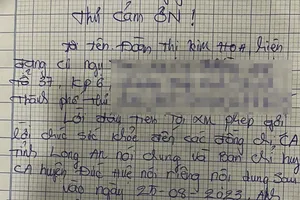 Thư Cảm ƠN !
Tôi tên Đoàn Thị Kim Hoa hiện
đang cư ngụ
Tổ 37, KP6,
Thành phố Thủ
Lời đầu tiên Tôi XM phép gửi
lời chúc sức khỏe đến các đồng chí, CA
tỉnh Long An nói chung và Ban chỉ huy
CA huyện Đức Huệ nói riêng nội dung sau
Vào ngày 25-08-2023, Anh